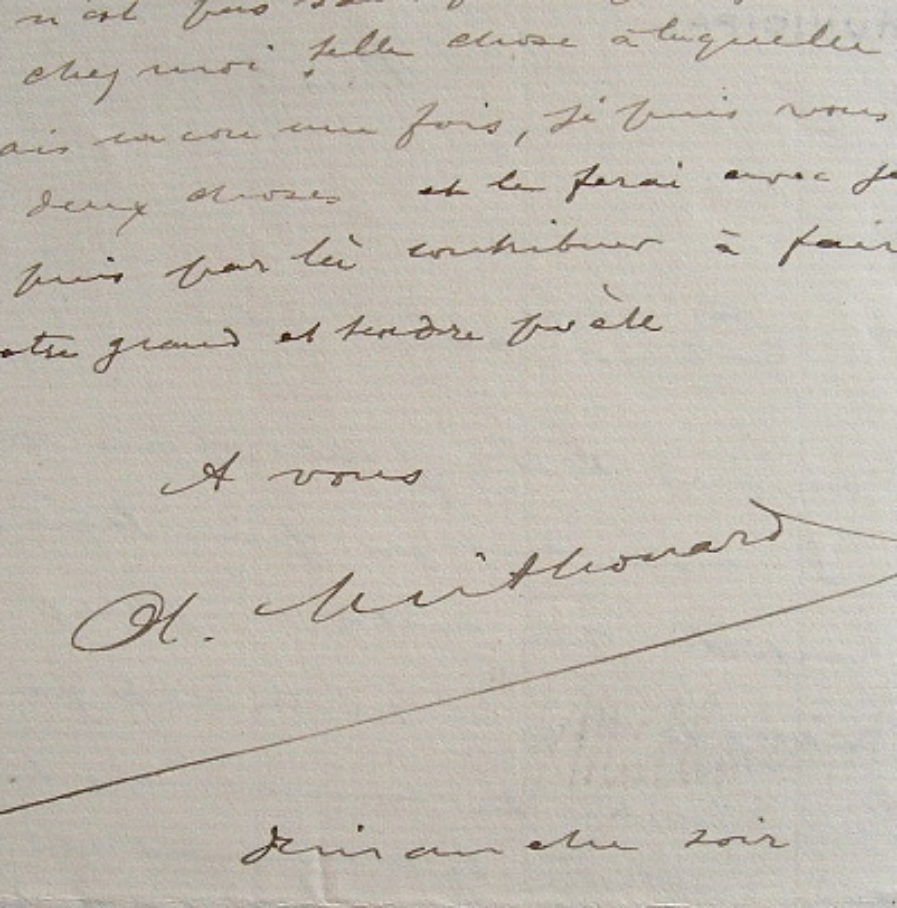 n'est pas
chez moi telle chose à laquelle
ais encore une fois, si puis vous
deux choses et le ferai avec
puis par là contribuer à fair
otre grand et tendre poète
A vous
A. Mithouard
dimanche soir